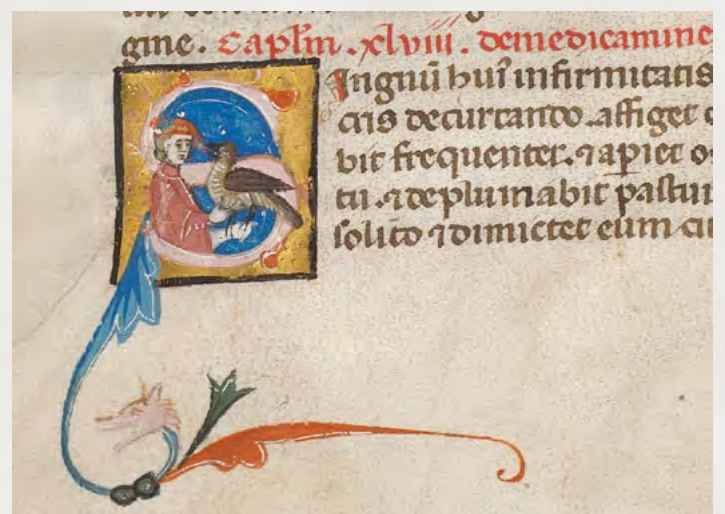 gine. Capl̃m .xlviii. de medicamine
SIngnū huiꝰ infirmitatis
decurtando. affiget
bit frequenter. ⁊ apiet
tu. ⁊ deplumabit pastu
solito ⁊ dimictet eum